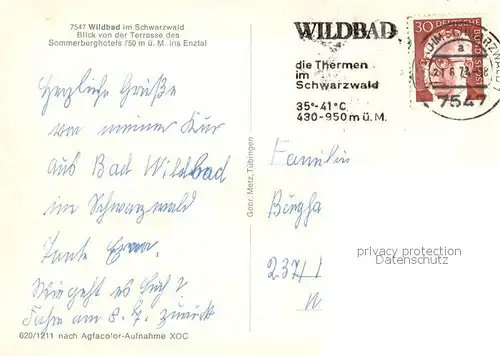 7547 Wildbad im Schwarzwald
Blick von der Terrasse des
Sommerberghotels 750 m ü. M. ins Enztal
Herzliche Grüße
von meiner Kur
aus Bad Wildbad
im Schwarzwald
Tante Erna,
Wie geht es Euch?
Fahre am 8. 7. zurück
620/1211 nach Agfacolor-Aufnahme XOC
Gebr. Metz, Tübingen
WILDBAD
die Thermen
im
Schwarzwald
35°-41°C
430-950 m ü. M.
30 DEUTSCHE BUNDESPOST
a
7547
Familie
237/
privacy protection
Datenschutz